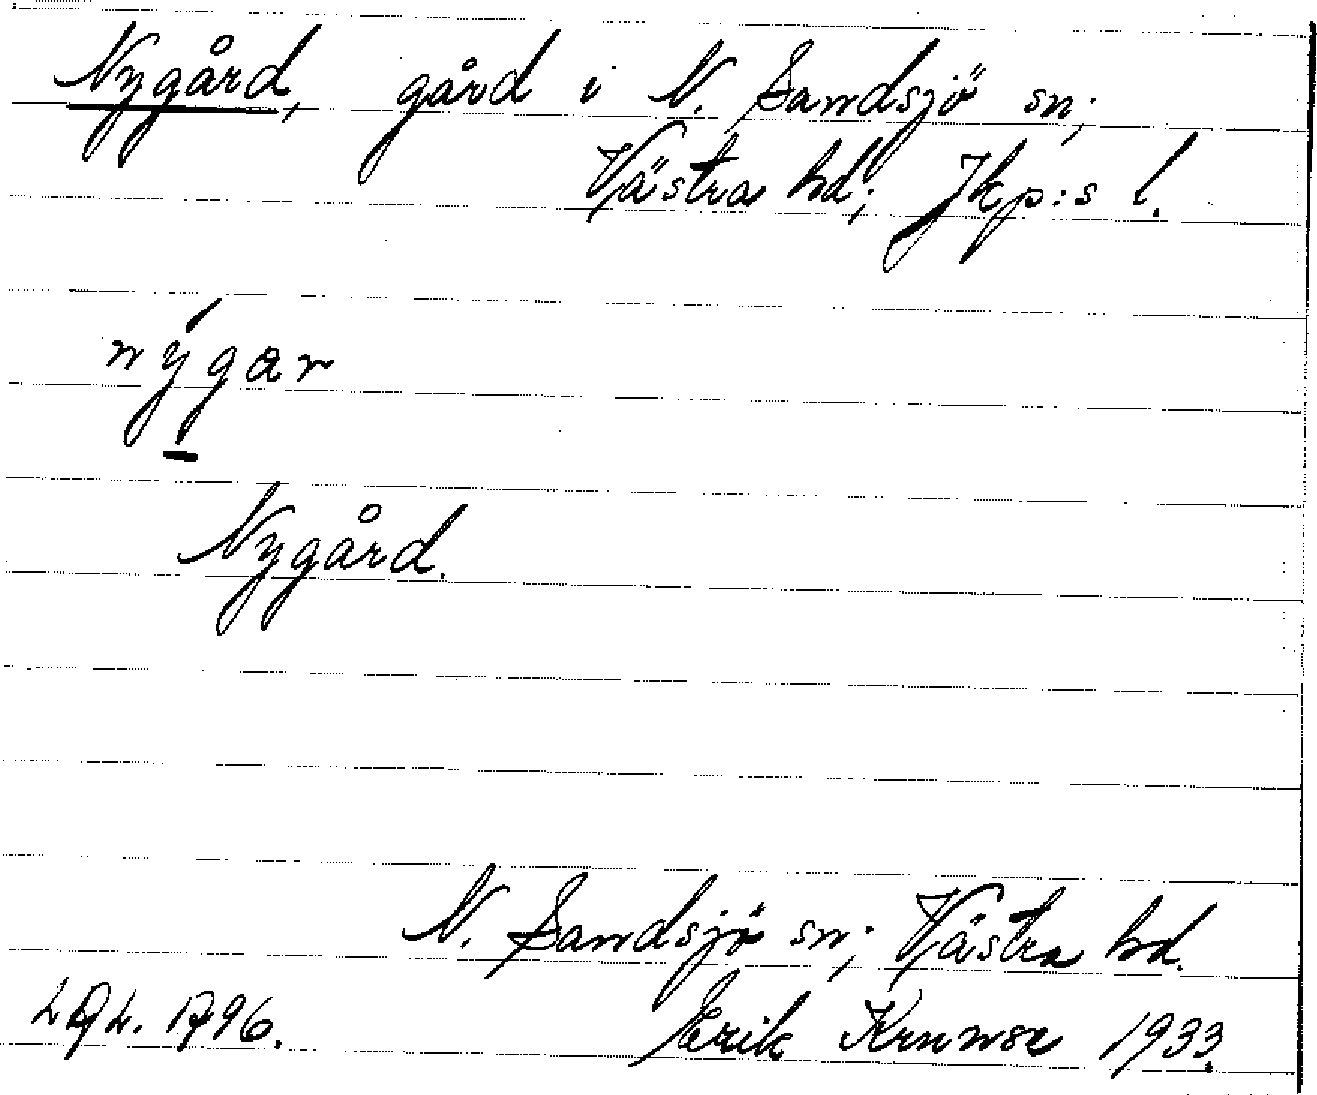 Nygård, gård i N. Sandsjö sn;
Västra hd; Jkp:s l.
nýgar
Nygård.
N. Sandsjö sn; Västra hd.
Erik 1933.